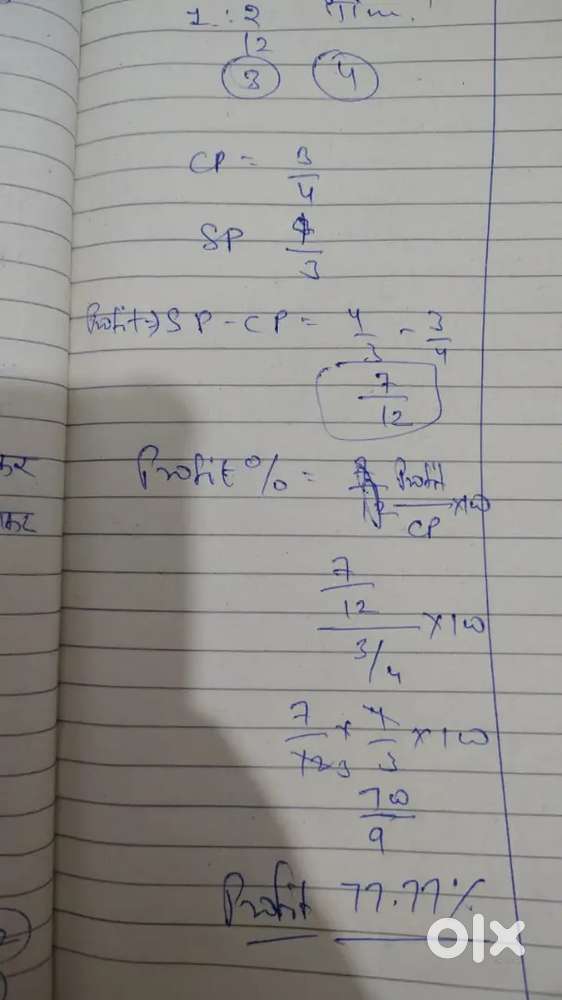 1 : 2 Tim.
12
3 4
CP = 3/4
SP 4/3
Profit => SP - CP = 4/3 - 3/4
7/12
Profit % = Profit/CP × 100
कर
कर
7/12 / 3/4 × 100
7/12 3 × 4/3 × 100
700/9
Profit 77.77%
olx